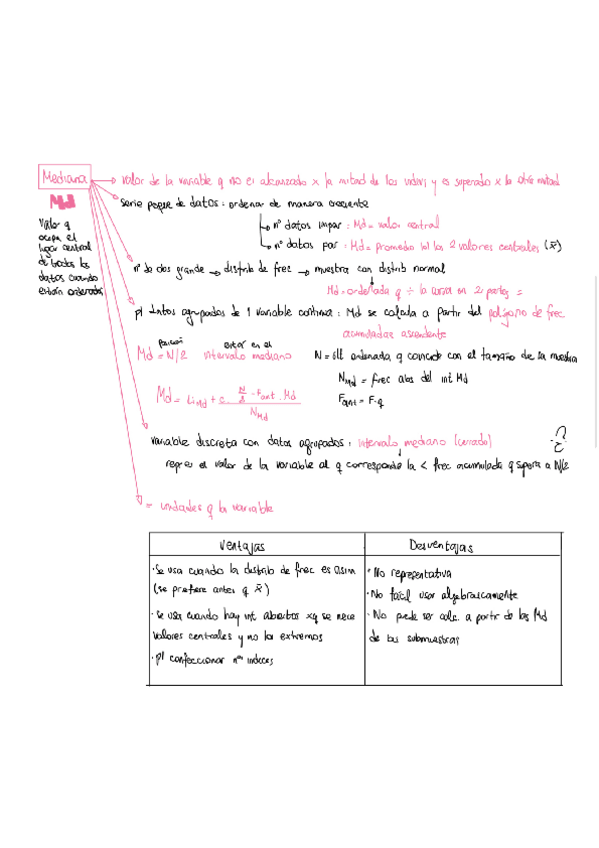 Mediana → valor de la variable q no es alcanzado x la mitad de los indivi y es superado x la otra mitad
Md
Valor q
ocupa el
lugar central
de todos los
datos cuando
están ordenados
serie peque de datos: ordenar de manera creciente
nº datos impar: Md = valor central
nº datos par: Md = promedio los 2 valores centrales (x̄)
nº de obs grande → distrib de frec → muestra con distrib normal
Md = ordenada q ÷ la curva en 2 partes =
p/ Intos agrupados de 1 variable continua: Md se calcula a partir del polígono de frec
acumuladas ascendente
posición estar en el
Md = N/2 intervalo mediano N = ordenada q coincide con el tamaño de la muestra
Md = Li Md + c · N/2 - Fant · Md / N Md
N Md = frec abs del int Md
Fant = F·q
variable discreta con datos agrupados: intervalo mediano (cerrado)
repres el valor de la variable al q corresponde la < frec acumulada q supera a N/2
= unidades q la variable
Ventajas Desventajas
· Se usa cuando la distrib de frec es asim
(se prefiere antes q x̄)
· se usa cuando hay int abiertos xq se nece
valores centrales y no los extremos
· p/ confeccionar nos indices
· No representativa
· No fácil usar algebraicamente
· No puede ser calc. a partir de las Md
de las submuestras